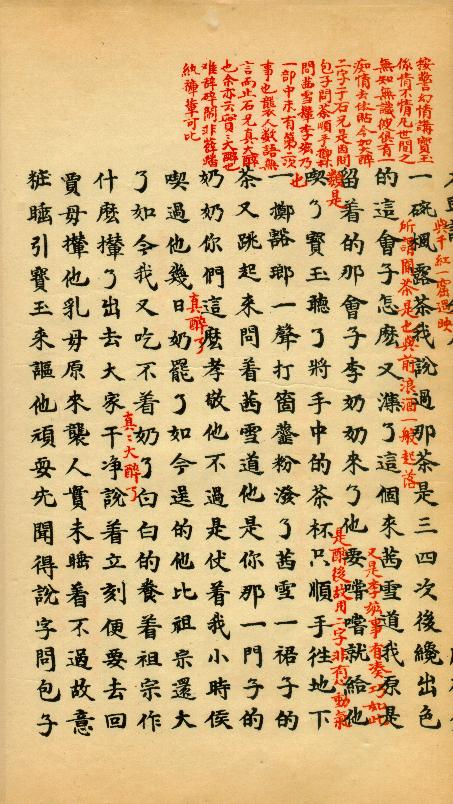 按警幻情講寶玉
係情不情凡世間之
無知無識彼俱有一
痴情去体貼今加大醉
二字于石兄是因問
包子問茶順手擲杯
問茜雪攆李嫫乃
一部中未有第二次
事也襲人數語無
言而止石兄真大醉
也余亦云實〻大醉也
難辭碎鬧非薛蟠
紈褲輩可比
與千紅一窟遇映
一碗楓露茶我說過那茶是三四次後纔出色
所謂閒茶是也與前浪酒一般起落
的這會子怎麽又了這個來茜雪道我原是
又是李嫫事有湊巧如此
留着的那會子李奶奶來了他要嚐嚐就給他
是醉後故用二字非有心動氣也
喫了寶玉聽了將手中的茶杯只順手往地下
一擲豁瑯一聲打箇虀粉潑了茜雪一裙子的
茶又跳起來問着茜雪道他是你那一門子的
奶奶你們這麽孝敬他不過是仗着我小時侯
真醉了
喫過他幾日奶罷了如今逞的他比祖宗還大
了如今我又吃不着奶了白白的養着祖宗作
真〻大醉了
什麽攆了出去大家干净說着立刻便要去回
賈母攆他乳母原來襲人實未睡着不過故意
粧睡引寶玉來謳他頑耍先聞得說字問包子